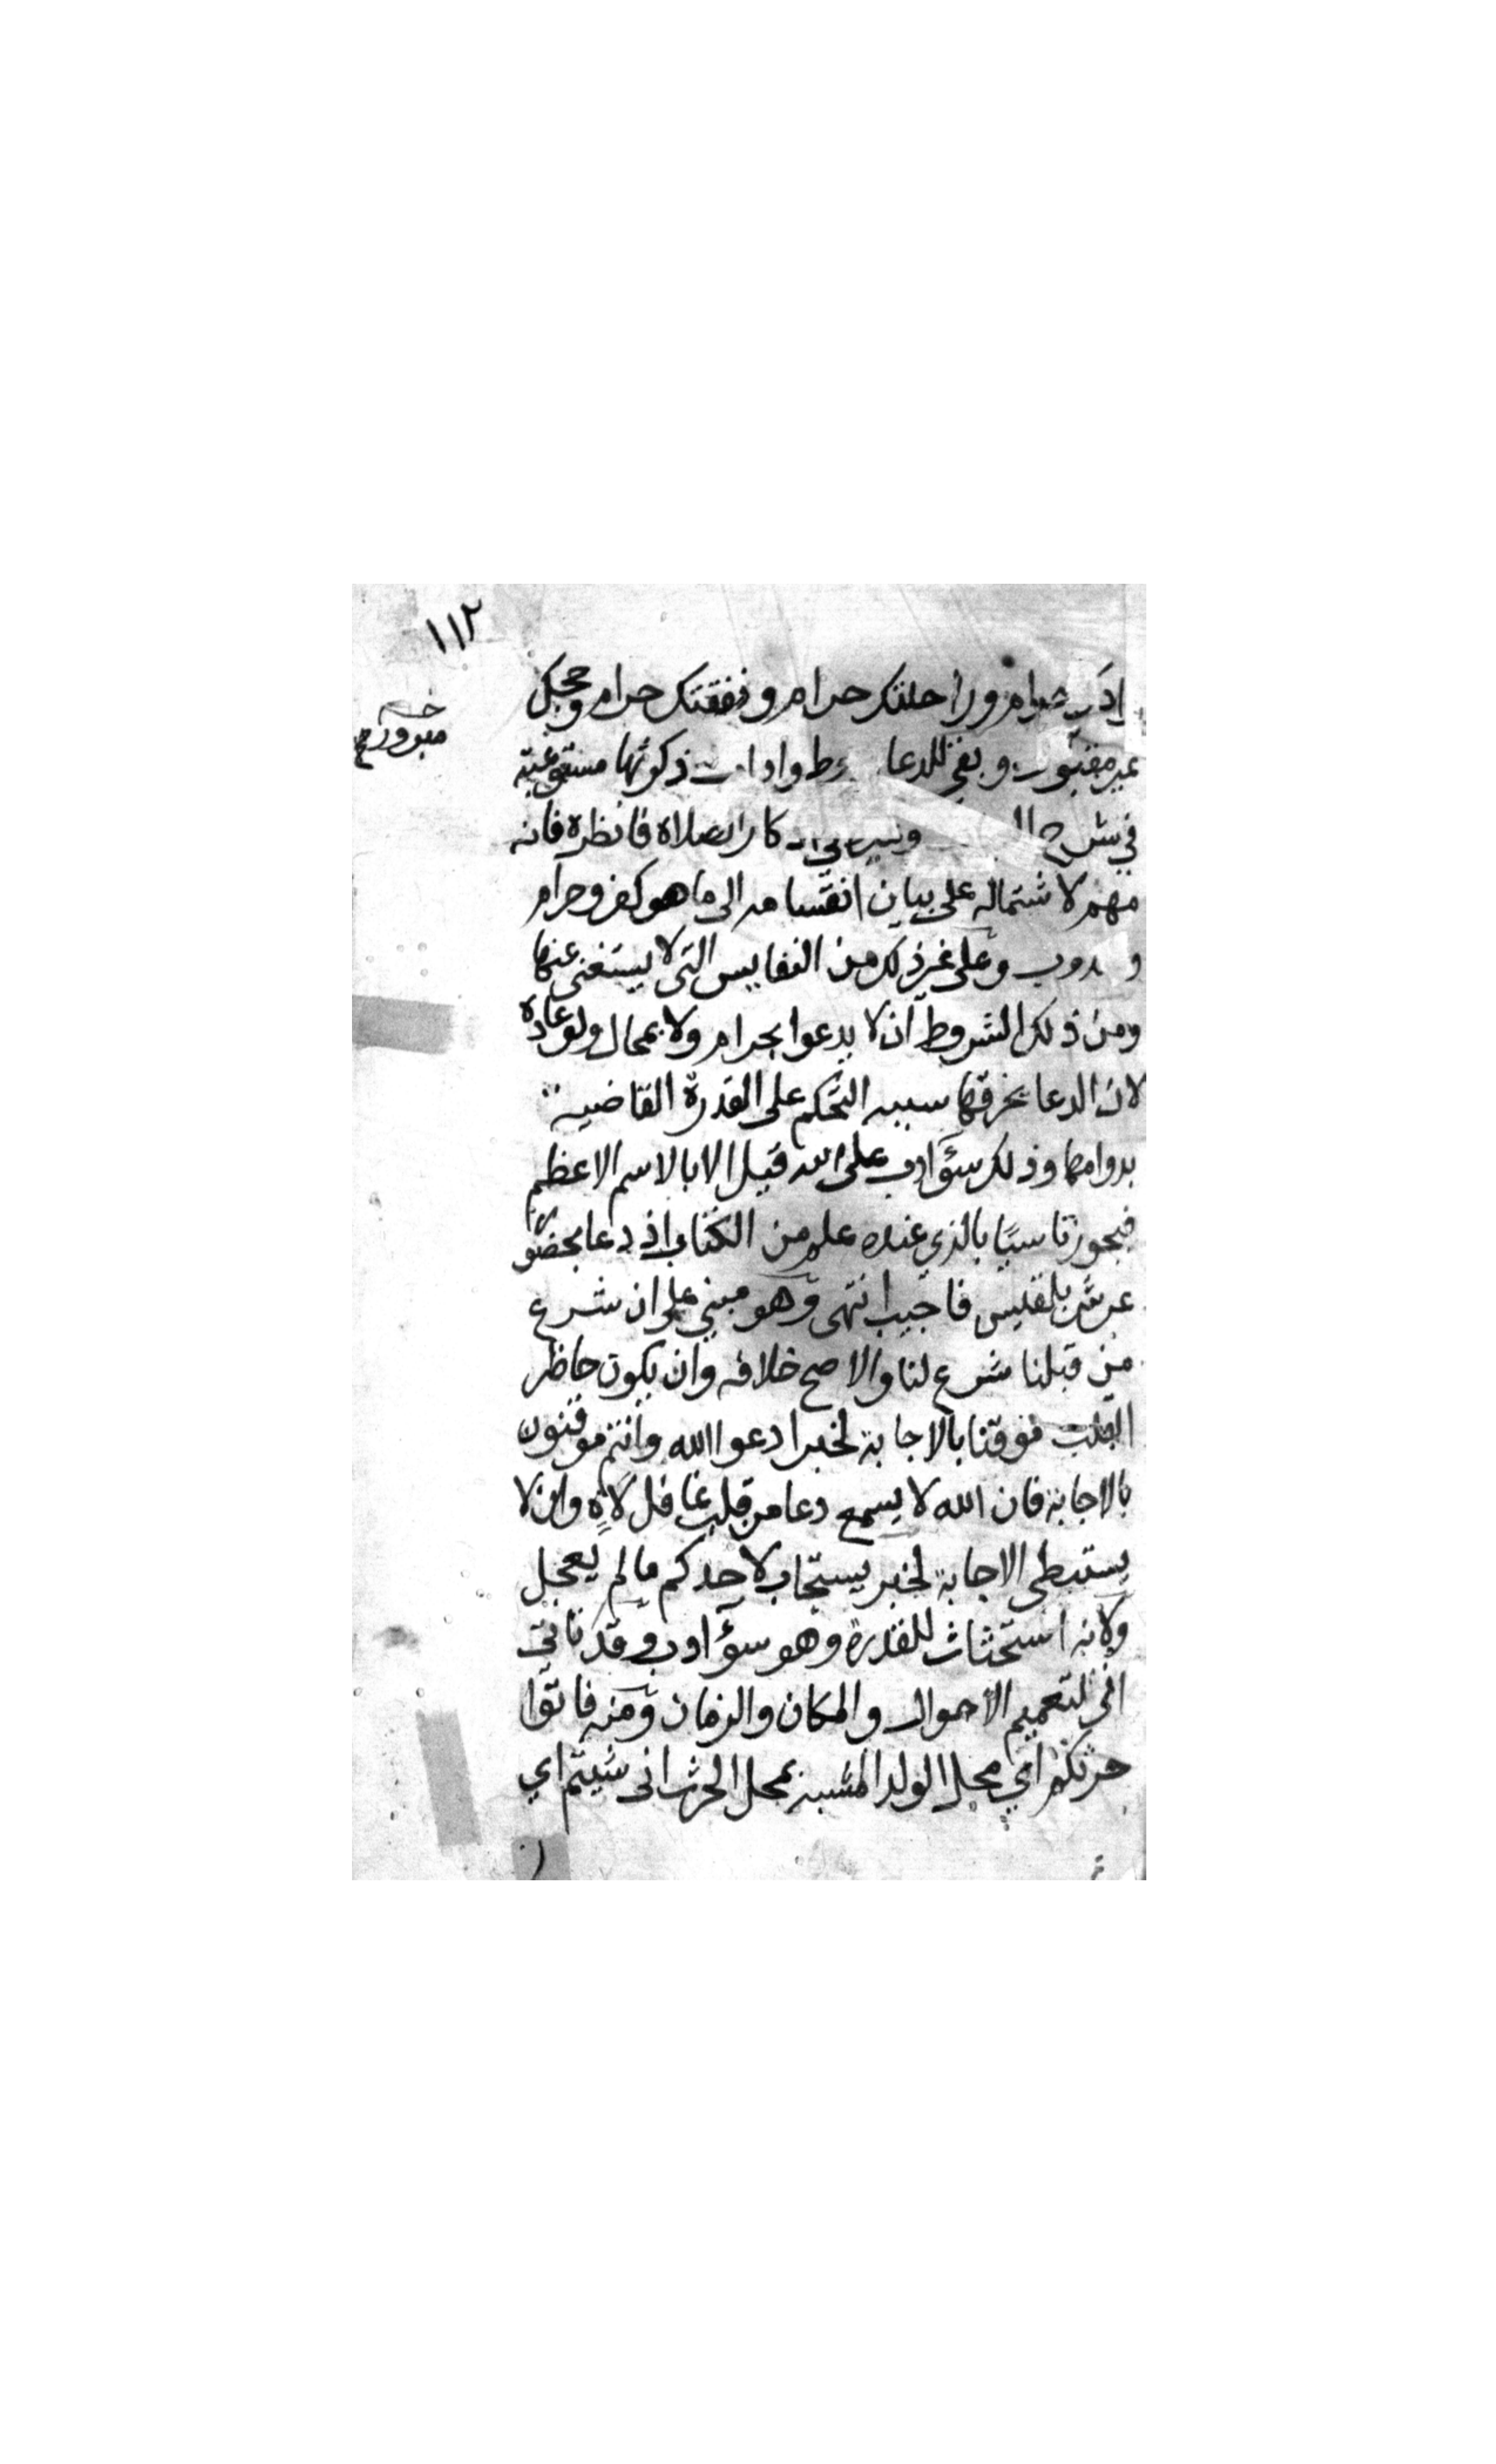 ١١٢
حرام وراحلتك حرام ونفقتك حرام وحجك
غير مقبول وبقي للدعا شروط واداب ذكرتها مستوعبة
في شرح كتاب الصلاة فانظره فانه
مهم لاشتماله على بيان انقسامه الى ما هو كفر وحرام
وعلى غير ذلك من النفايس التي لا يستغنى عنها
ومن ذلك الشروط ان لا يدعوا بحرام ولا بمحال ولو عادة
لان الدعا بخرقها سببه التحكم على القدرة القاضية
بدوامها وذلك سؤ ادب على الله قيل الا بالاسم الاعظم
فيجوز تاسيًا بالذي عنده علم من الكتاب اذ دعا بحضور
عرش بلقيس فاجيب انتهى وهو مبني على ان شرع
من قبلنا شرع لنا والاصح خلافه وان يكون حاظر
القلب موقنا بالاجابة لخبر ادعوا الله وانتم موقنون
بالاجابة فان الله لا يسمع دعا من قلب غافل لاهٍ وان لا
يستبطى الاجابة لخبر يستجاب لاحدكم ما لم يعجل
ولانه استحثاث للقدرة وهو سؤ ادب وقد تاتي
انى لتعميم الاحوال والمكان والزمان ومنه فاتوا
حرثكم اي محل الولد المشبه بمحل الحرث انى شيتم اي